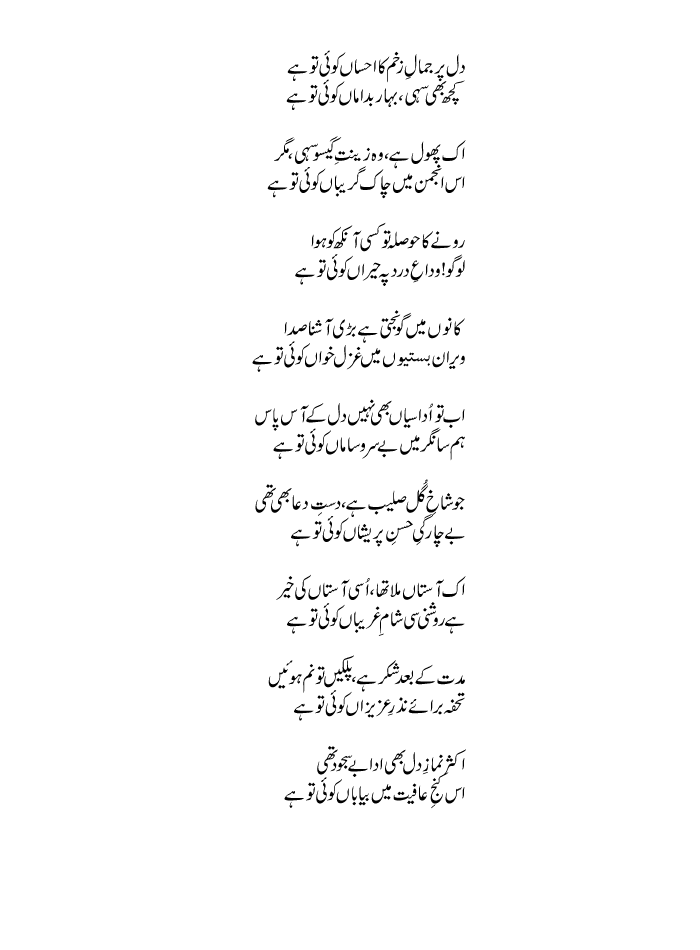 دل پر جمالِ زخم کا احساں کوئی تو ہے
کچھ بھی سہی، بہار بداماں کوئی تو ہے
اک پھول ہے، وہ زینتِ گیسو سہی، مگر
اس انجمن میں چاک گریباں کوئی تو ہے
رونے کا حوصلہ تو کسی آنکھ کو ہوا
لوگو! وداعِ درد پہ حیراں کوئی تو ہے
کانوں میں گونجتی ہے بڑی آشنا صدا
ویران بستیوں میں غزل خواں کوئی تو ہے
اب تو اُداسیاں بھی نہیں دل کے آس پاس
ہم سا نگر میں بے سر و ساماں کوئی تو ہے
جو شاخِ گُل صلیب ہے، دستِ دعا بھی تھی
بے چارگیِ حسنِ پریشاں کوئی تو ہے
اک آستاں ملا تھا، اُسی آستاں کی خیر
ہے روشنی سی شامِ غریباں کوئی تو ہے
مدت کے بعد شکر ہے، پلکیں تو نم ہوئیں
تحفہ برائے نذرِ عزیزاں کوئی تو ہے
اکثر نمازِ دل بھی ادا بے سجود تھی
اس کنجِ عافیت میں بیاباں کوئی تو ہے